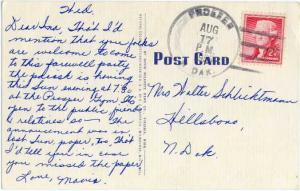 Wed.
Dear Ina, Tho't I'd
mention that you folks
are welcome to come
to this farewell party
the parish is having
this Sun evening at 7:30
at the Prosper Gym. It's
open to the public, friends
& relatives so - The
announcement was in
last Sun. paper, too, tho't
I'd tell you in case
you missed the paper
Love, Mavis.
PROSPER
AUG
17
P.M.
DAK.
POST CARD
Mrs Walter Schlichtmann
Hillsboro,
N. Dak